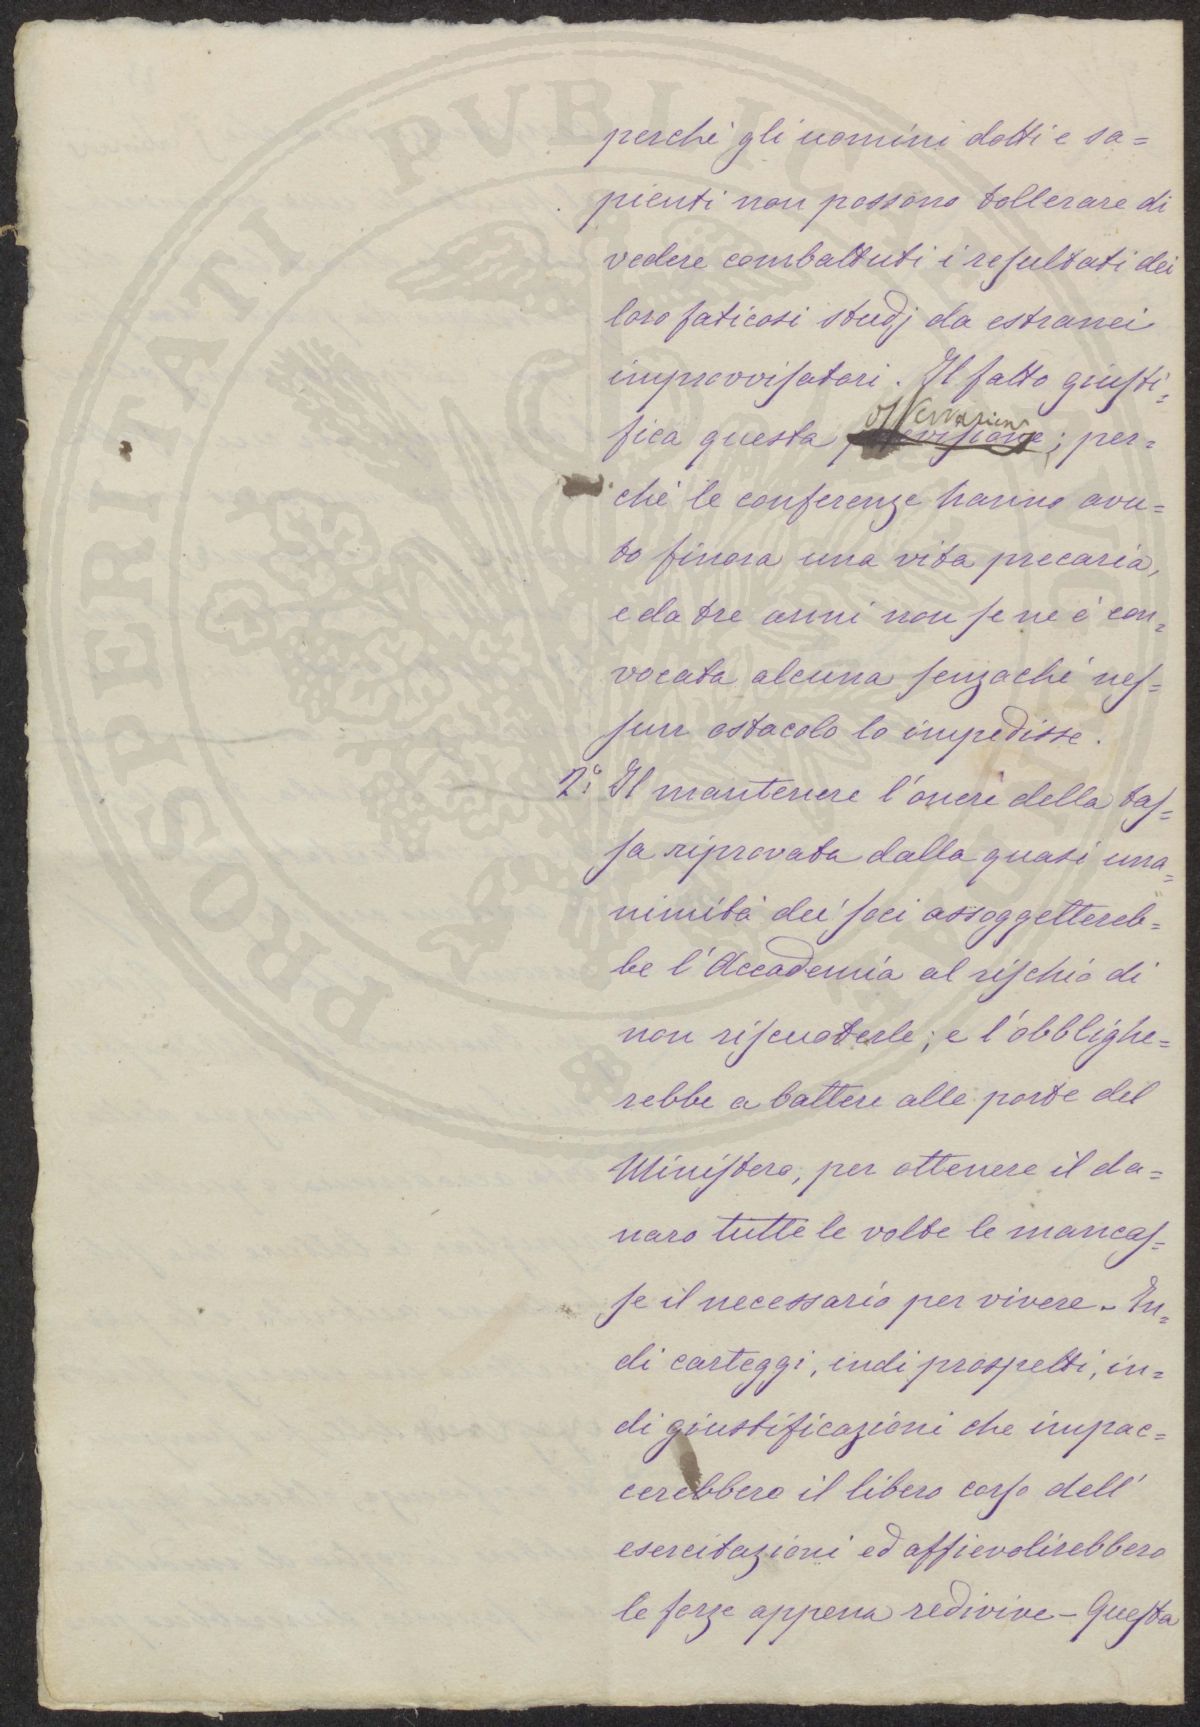 PROSPERITATI PVBLICAE
perchè gli uomini dotti e sa=
pienti non possono tollerare di
vedere combattuti i resultati dei
loro faticosi studj da estranei
improvvisatori. Il fatto giusti=
osservazione
fica questa previsione; per=
chè le conferenze hanno avu=
to finora una vita precaria,
e da tre anni non se ne è con=
vocata alcuna senzachè nes=
sun ostacolo lo impedisse.
2.° Il mantenere l'onere della tas=
sa riprovata dalla quasi una=
nimità dei soci assoggettereb=
be l'Accademia al rischio di
non riscuoterle; e l'obblighe=
rebbe a battere alle porte del
Ministero, per ottenere il da=
naro tutte le volte le mancas=
se il necessario per vivere. In=
di carteggi, indi prospetti, in=
di giustificazioni che impac=
cerebbero il libero corso dell'
esercitazioni ed affievolirebbero
le forze appena redivive – Questa